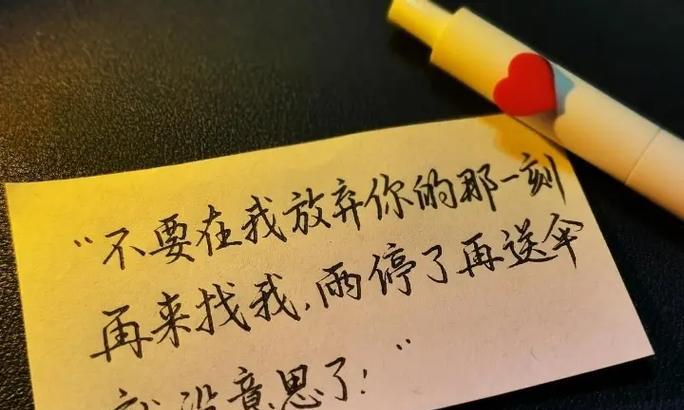 “不要在我放弃你的那一刻
再来找我,雨停了再送伞
就没意思了!”